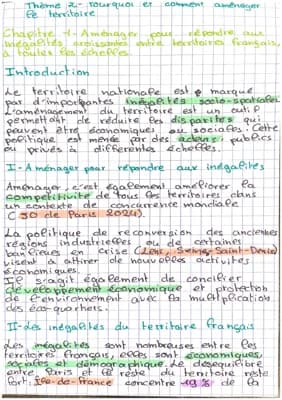 Thème 2- Pourquoi et comment aménager
le territoire
Chapitre 1- Aménager pour répondre aux
inégalités croissantes entre territoires français,
à toutes les échelles.
Introduction
Le territoire nationale est marqué
par d'importantes inégalités socio-spatiales
L'aménagement du territoire est un outil
permettant de réduire les disparités qui
peuvent être économiques ou sociales. Cette
politique est menée par des acteurs publics
ou privés à différentes échelles.
I- Aménager pour répondre aux inégalités
Aménager, c'est également améliorer la
compétitivité de tous les territoires dans
un contexte de concurrence mondiale
(JO de Paris 2024).
La politique de reconversion des anciennes
régions industrielles ou de certaines
banlieues en crise (Lens, Seine-Saint-Denis)
visent à attirer de nouvelles activités
économiques.
Il s'agit également de concilier
développement économique et protection
de l'environnement avec la multiplication
des éco-quartiers.
II- des inégalités du territoire français
Les inégalités sont nombreuses entre les
territoires français, elles sont économiques,
sociales et démographique. Le déséquilibre
entre Paris et le reste du territoire reste
fort: Ile-de-France concentre 19 % de la